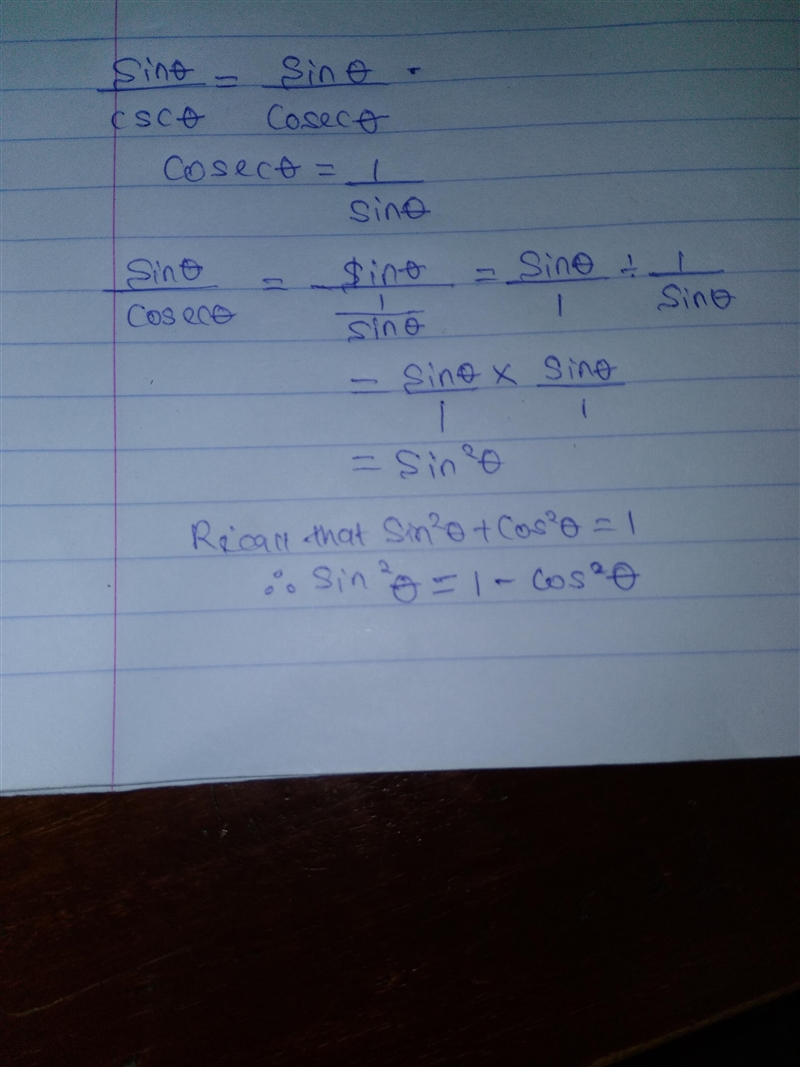 Sinθ/cscθ = Sinθ/Cosecθ .
Cosecθ = 1/Sinθ
Sinθ/Cosecθ = Sinθ/(1/Sinθ) = Sinθ/1 ÷ 1/Sinθ
= Sinθ/1 × Sinθ/1
= Sin²θ
Recall that Sin²θ + Cos²θ = 1
∴ Sin²θ = 1 - Cos²θ